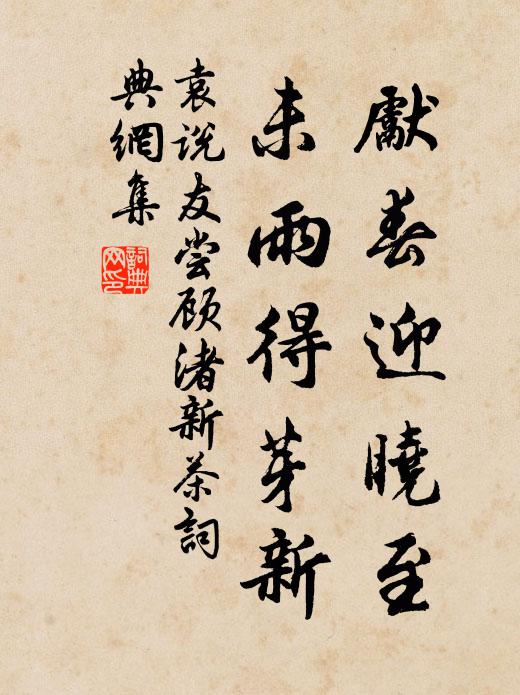 獻春迎曉至
未雨得芽新
袁说友尝顾渚新茶詞
典網集
詞典網印